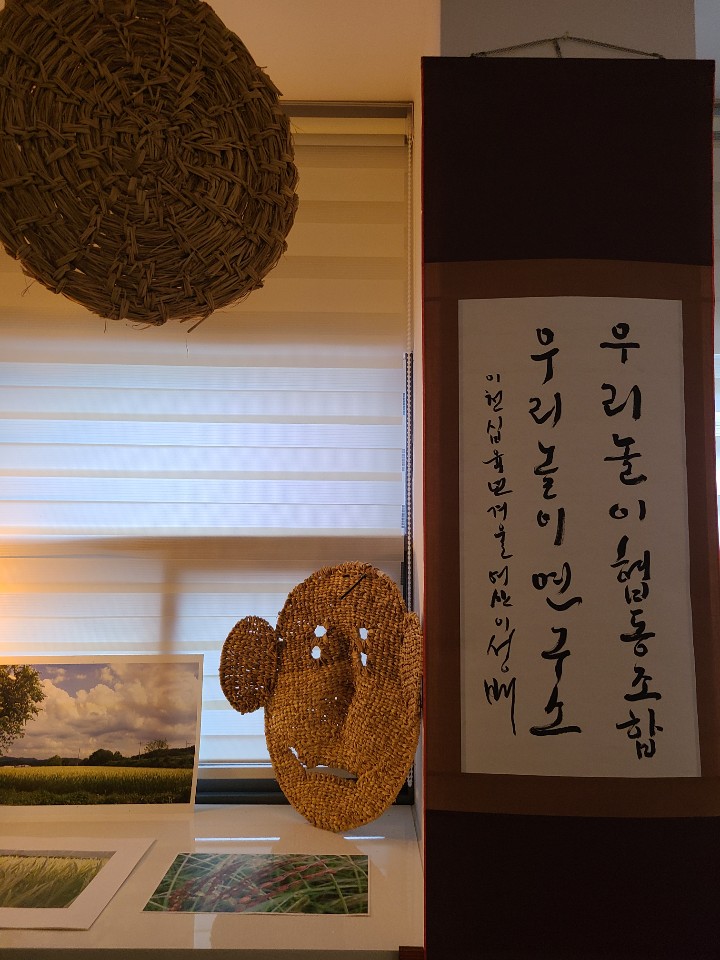 우리놀이협동조합
우리놀이연구소
이천십육년겨울 이성배